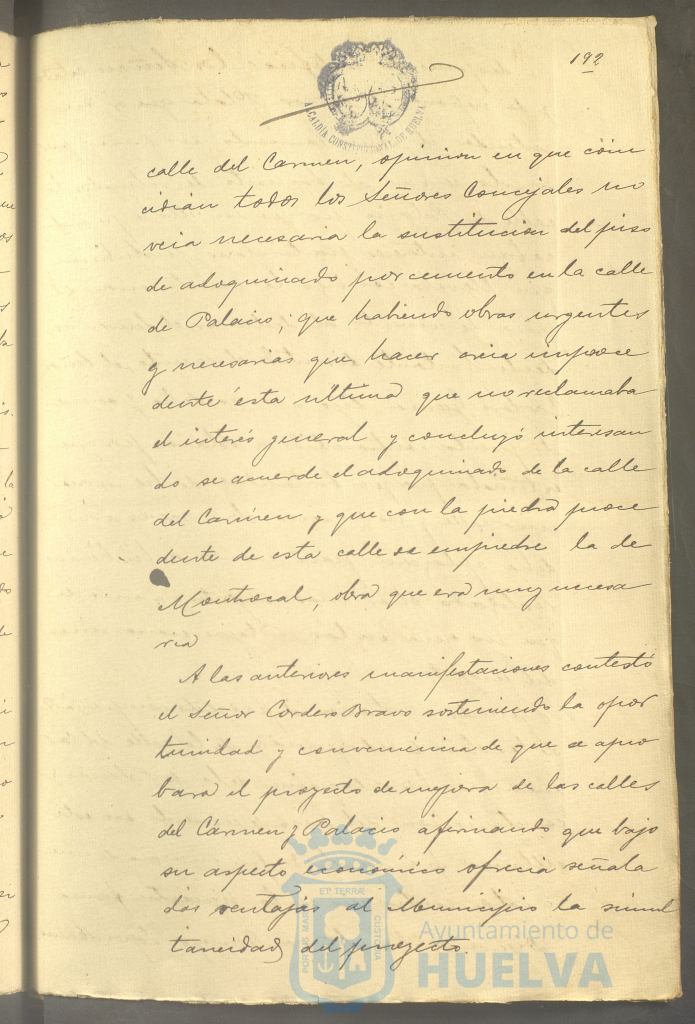 192
ALCALDÍA CONSTITUCIONAL DE HUELVA
calle del Carmen, opinion en que coin
cidian todos los Señores Concejales no
veia necesaria la sustitucion del piso
de adoquinado por cemento en la calle
de Palacio; que habiendo obras urgentes
y necesarias que hacer creia improce
dente ésta ultima que no reclamaba
el interés general y concluyó interesan
do se acuerde el adoquinado de la calle
del Carmen y que con la piedra proce
dente de esta calle se empiedre la de
Montrocal, obra que era muy necesa
ria
A las anteriores manifestaciones contestó
el Señor Cordero Bravo sosteniendo la opor
tunidad y conveniencia de que se apro
bara el proyecto de mejora de las calles
del Cármen y Palacio afirmando que bajo
su aspecto económico ofrecia señala
das ventajas al Municipio la simul
taneidad del proyecto.
PORTUS MARIS ET TERRÆ CUSTODIA
Ayuntamiento de
HUELVA